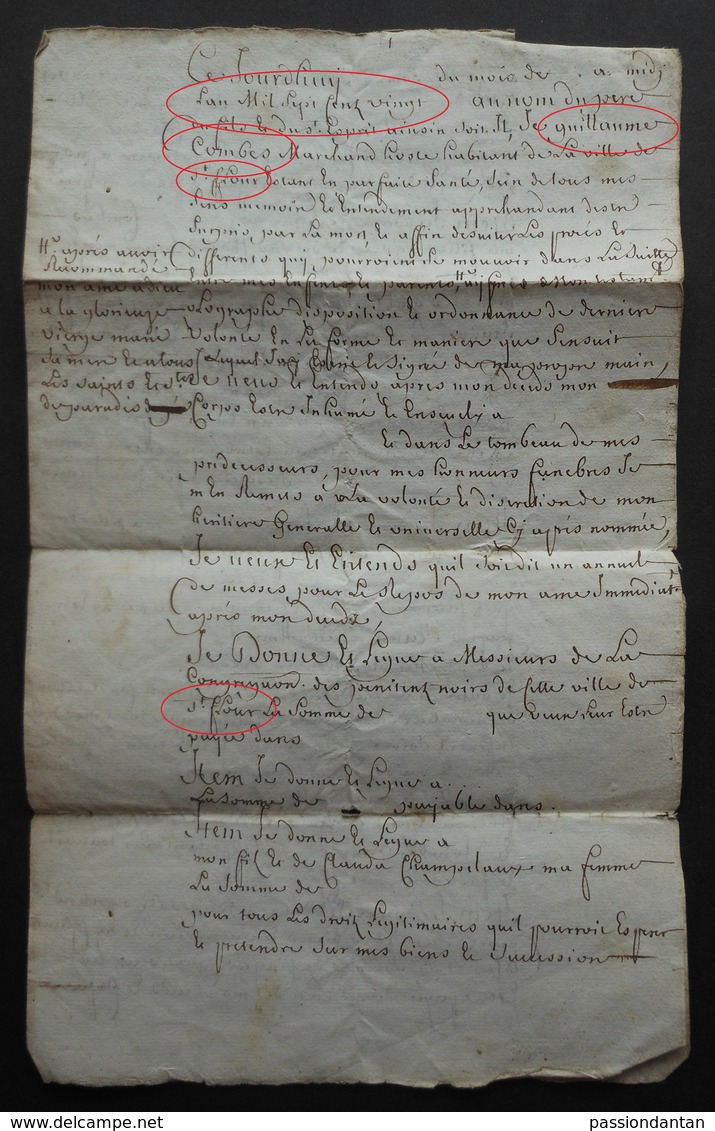 Ce Jourdhuy du mois de a midy
Lan Mil Sept Cent vingt au nom du pere
du fils et du st Esprit ainsin soit Il, Je guillaume
Combes Marchand hoste habitant de La ville de
st fflour Estant En parfaite santé, sein de tous mes
sens memoire Et Entendement apprehandant destre
surpris, par La mort Et affin desviter Les proces Et
differents quy pourroient se mouvoir dans La suitte
Entre mes Enfents Et parents, Il ay fait Mon
ologrAphe disposition Et ordonnance de derniere
volonté En La forme Et maniere que sensuit
Lequel Jay Escrit Et signé de ma propre main,
Je veus Et Entends apres mon decids mon
Corps Estre Inhumé Et Ensevely a
Et dans Le tombeau de mes
predecesseurs, pour mes honneurs funebres Je
mEn Remets à La volonté Et discretion de mon
heritiere Generalle Et universelle Cy apres nommée,
Je veux Et Entends quil soit dit un annuel
de messes pour Le Repos de mon ame Immediatt
apres mon decidz,
Je Donne Et Legue a Messieurs de La
Congregaon. des penitent noirs de Cette ville de
st fflour La somme de que veux Leur Estre
payée dans
Item Je donne Et Legue a . . .
La somme de payable dans.
Item Je donne Et Legue a
mon fil Et de Clauda Champelaux ma femme
La somme de
pour tous Les droit Legitimaires quil pourroit Esperer
Et pretendre sur mes biens Et succession
Il apres avoir
Recommandé
mon ame a dieu
a la glorieuse
vierge marie
sa mere Et a tous
Les saints Et stes
de paradis
passiondantan